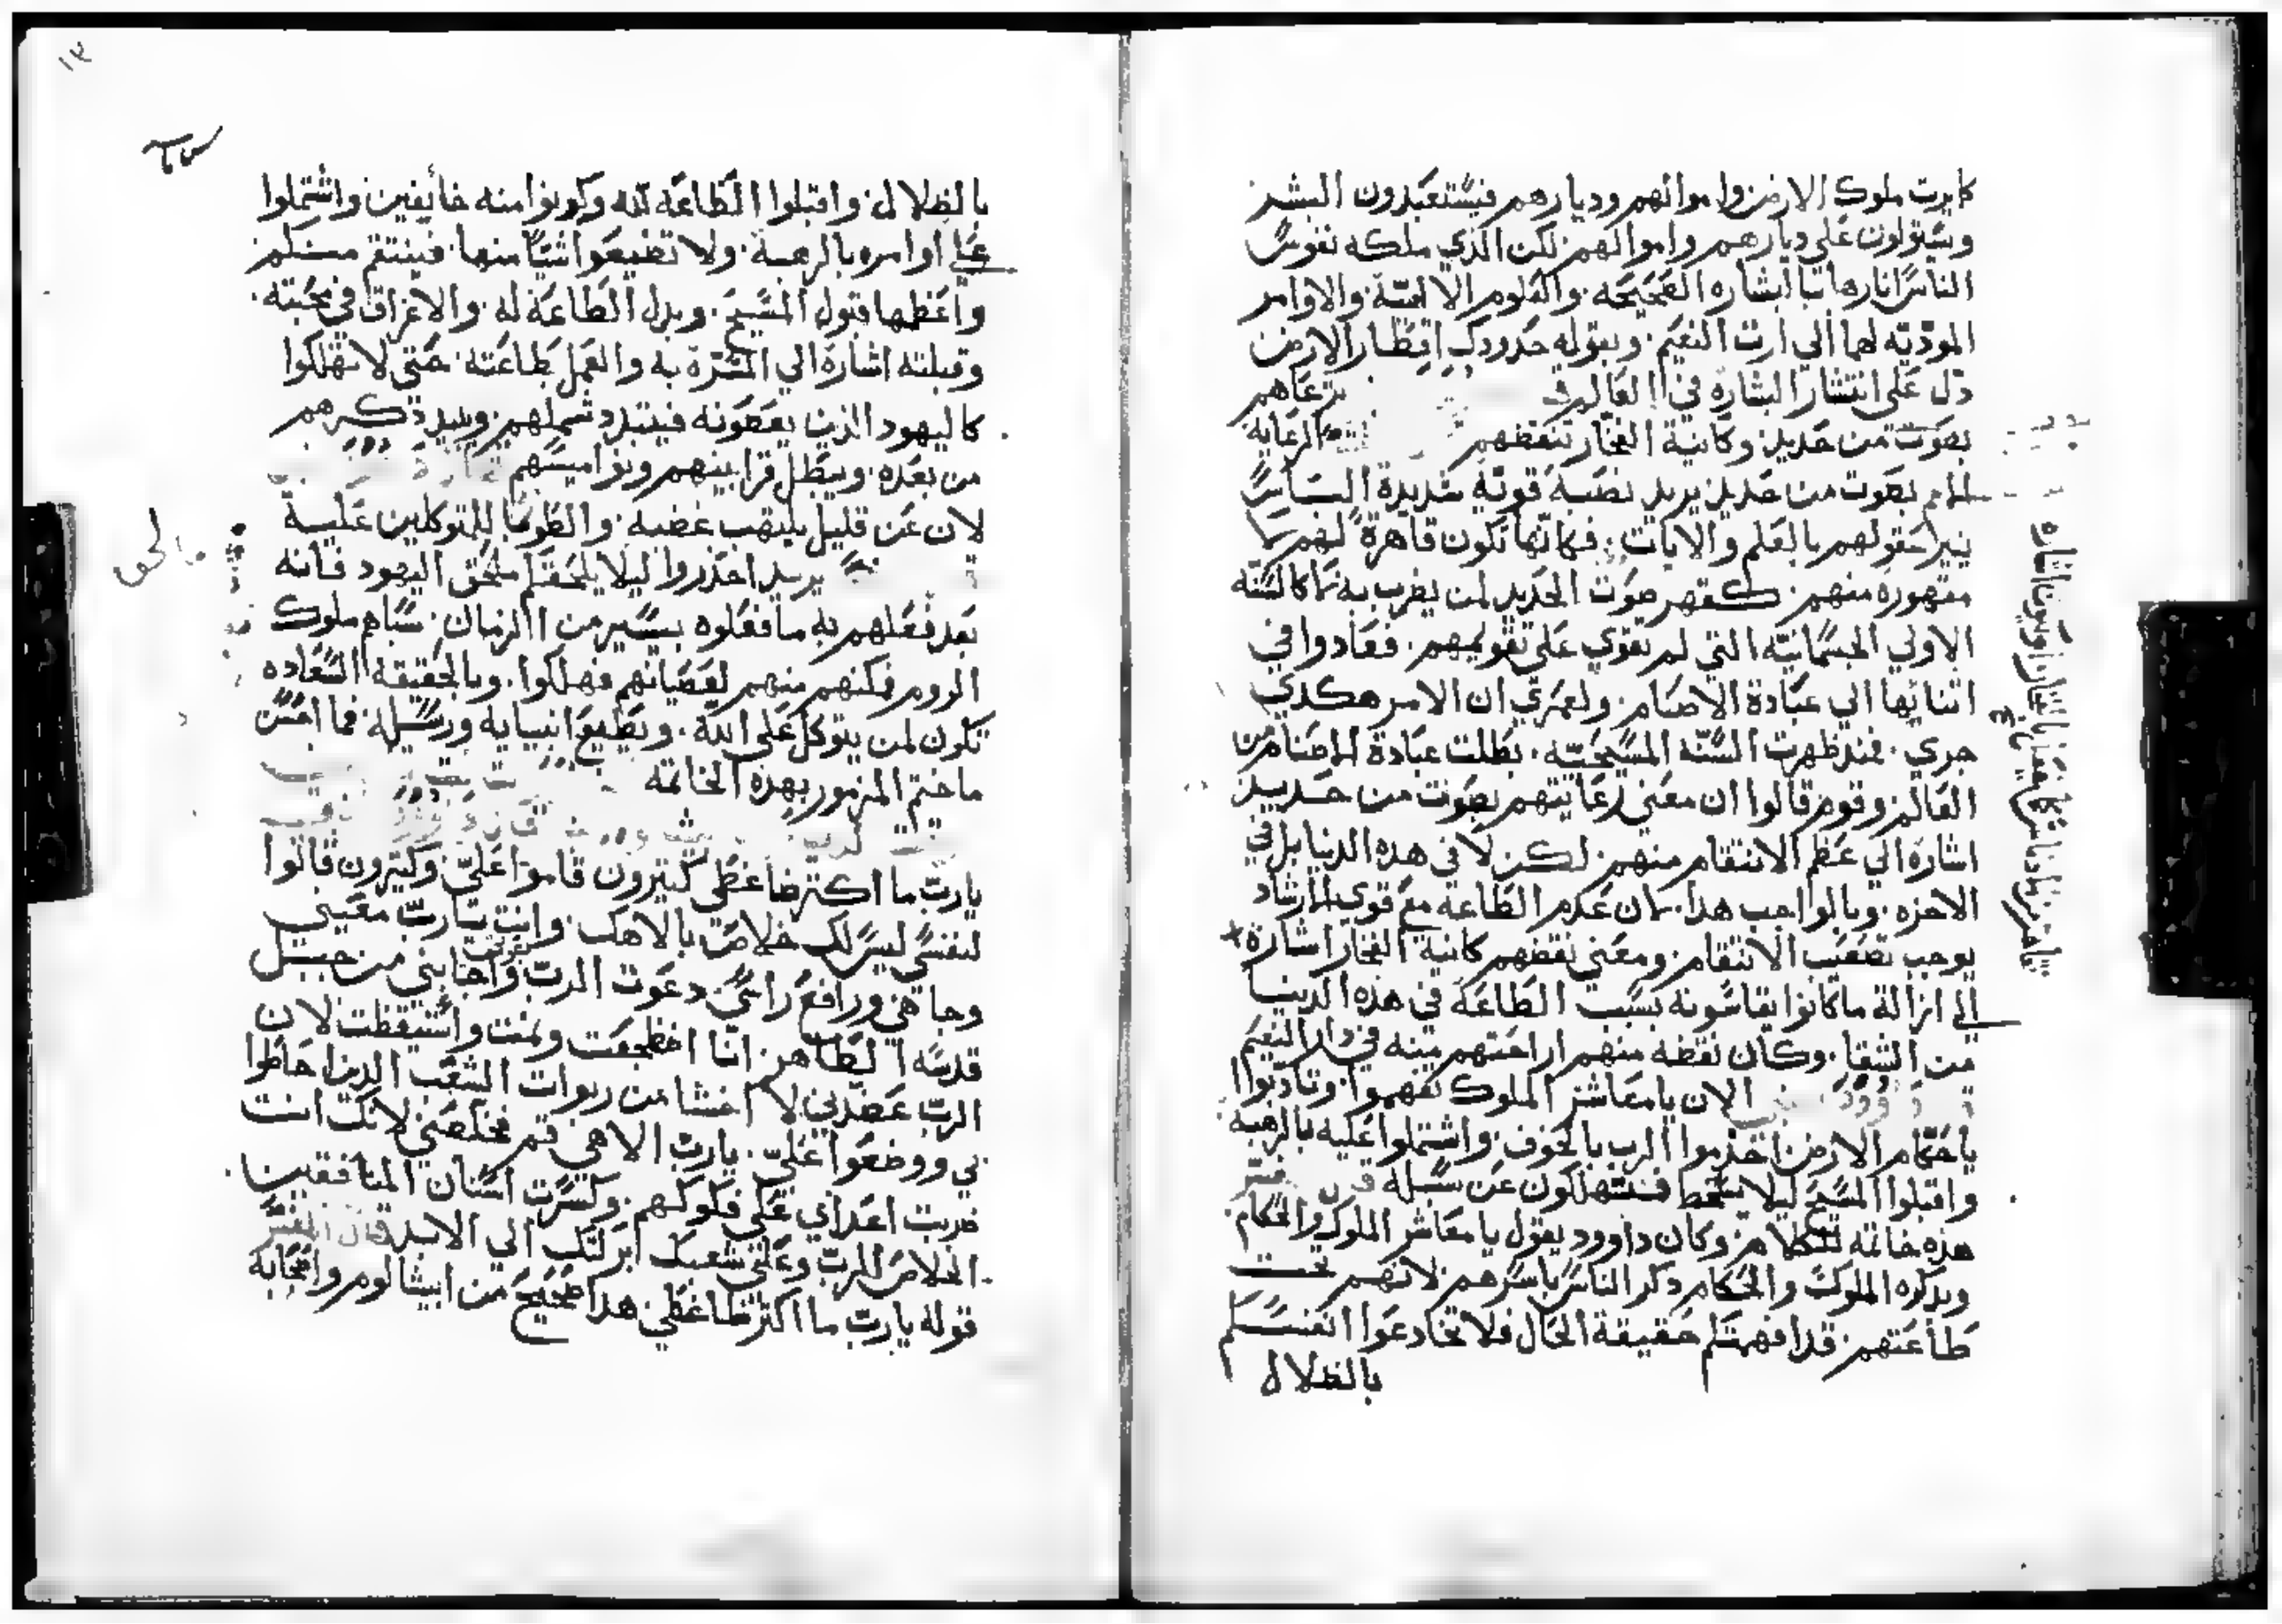 كابرت ملوك الارض واموالهم وديارهم فيستعبدون البشر
ويستولون على ديارهم واموالهم. لكن الذي ملكه نفوس
الناس انارها بالبشاره الصحيحه. والعلوم الالاهية. والاوامر
المودّيه لهما الي ارت النعيم. وبقوله حدودك اقطار الارض
دل على انتشار البشارة في العالم ترعاهم
بصوت من حديد وكانية الفخار تنقضهم الرعاية
لهم بصوت من حديد يريد نصبة قويّة شديدة الباس
عقولهم بالعلم والايات. فكانّها تكون قاهرة لهم لا
مقهوره منهم. كقهر صوت الحديد لمن يضرب به لا كالسنّه
الاولي الجسمانيّه التي لم تقوي على تقويمهم. فعادوا في
اتنائها الي عبادة الاصنام. ولعمري ان الامر هكدي
جري. فمند ظهرت السنّة المسيحيّه. بطلت عبادة الاصنام من
العالم وقوم قالوا ان معني رعايتهم بصوت من حديد
اشارة الي عظم الانتقام منهم. لكن لا في هده الدنيا بل في
الاخره. وبالواجب هدا. لان عدم الطاعة مع قوي الارشاد
يوجب تصعيب الانتقام. ومعني نقضهم كانية الفخار اشارة
الي ازالة ما كانوا يقاسونه بسبب الطاعة في هده الدنيا
من الشقا. وكان نقضه منهم اراحتهم منه في دار النعيم
الان يا معاشر الملوك تفهموا. وتادّبوا
يا حكّام الارض اخدموا الرب بالخوف. واشتملوا عليه بالرهبه
واقبلوا المسيح ليلا يسخط فتهلكون عن سبله
هذه خاتمه الكلام. وكان داوود يقول يا معاشر الملوك والحكام
وبدكره الملوك والحكام دكر الناس باسرهم. لانهم تحت
طاعتهم. قد افهمتكم حقيقة الحال فلا تخادعوا انفسكم
بالظلال
١٣
بالظلال. واقبلوا الطاعة لله وكونوا منه خائفين واشتملوا
على اوامره بالرهبة. ولا تضيعوا شيًا منها. فينتقم منكم
واعظمها قبول المسيح. وبدل الطاعة له. والاغراق في محبته.
وقبلته اشارة الي المسرّة به والعمل بطاعته. حتي لا تهلكوا
كاليهود الذين يعصونه فيتبدد شملهم ويبيد دكرهم
من بعده. ويبطل قرابينهم ونواميسهم
لان عن قليل يلتهب غضبه. والطوبا للمتوكلين عليه
يريد احذروا ليلا يلحقكم ما لحق اليهود فانه
بعد فعلهم به ما فعلوه بيسير من الزمان. سباهم ملوك
الروم فكنهم منهم لعصيانهم فهلكوا. وبالحقيقة السعاده
تكون لمن يتوكل على الله. ويطيع انبيايه ورسله. فما احسن
ما ختم المزمور بهذه الخاتمه
يا ربّ ما اكتر ضاغطي كتيرون قاموا عليّ وكتيرون قالوا
لنفسي ليس لك خلاص بالاهك. وانت يا ربّ معيني
وجاهي ورافع راسي. دعوت الربّ واجابني من جبل
قدسه الطاهر. انا اضطجعت ونمت واستيقظت لان
الربّ عضدني لا اخشا من ربوات الشعب الدين احاطوا
بي ووضعوا عليّ. يا ربّ الاهي قم فخلصني لانك انت
ضربت اعداي على فكوكهم. وكسرت اسنان المنافقين
الخلاص للربّ وعلي شعبك ابركتك الي الابد قال المفسّر
قوله يا ربّ ما اكتر ضاغطي. هدا صحيح من ابيشالوم واصحابه